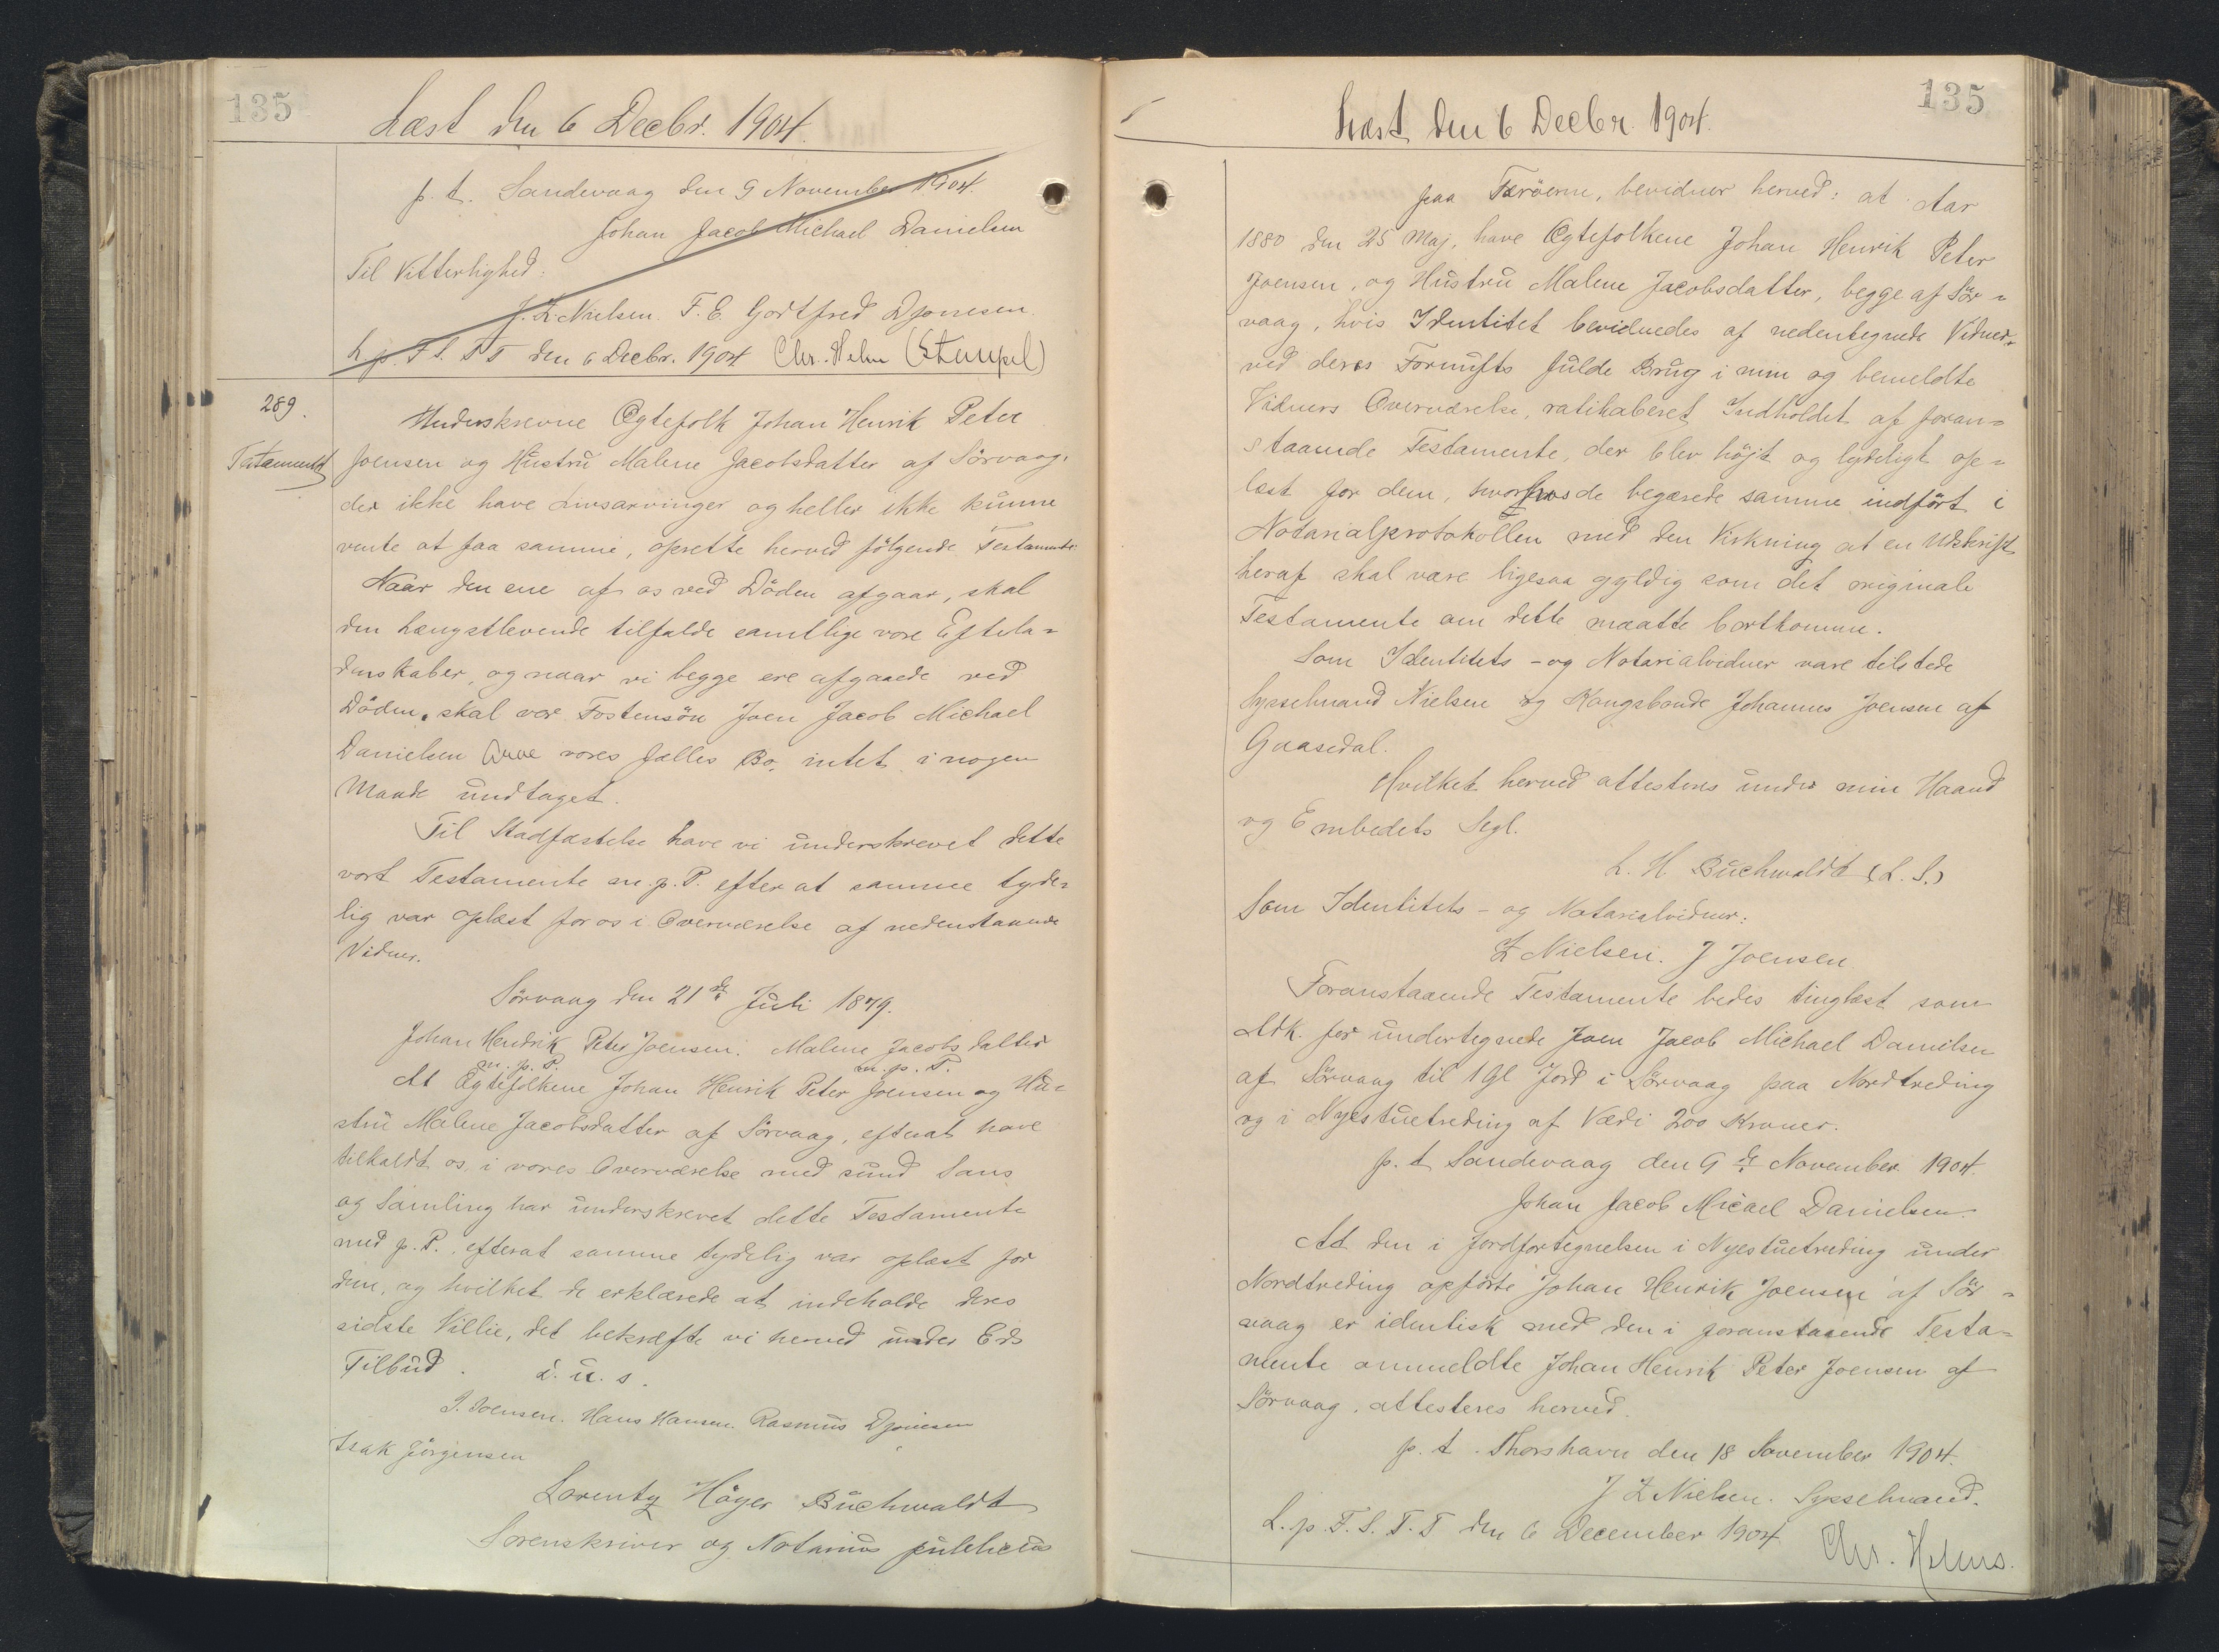 135
Læst den 6 Decbr. 1904.
p. t. Sandevaag den 9 November 1904.
Johan Jacob Michael Danielsen
Til Vitterlighed:
J. Z. Nielsen. F. E. Godtfred Djonesen
L. p. F. S. T T den 6 Decbr. 1904 Chr. Helms (Stempel)
289.
Underskrevne Egtefolk Johan Henrik Peter
Testamente
Joensen og Hustru Malene Jacobsdatter af Sörvaag,
der ikke have Livsarvinger og heller ikke kunne
vente at faa samme, oprette herved fölgende Testamente
Naar den ene af os ved Döden afgaar, skal
den Længstlevende tilfalde samtlige vore Efterla=
denskaber, og naar vi begge ere afgaaede ved
Döden, skal vor Fostersön Joen Jacob Michael
Danielsen Arve vores fælles Bo, intet i nogen
Maade undtaget.
Til Stadfæstelse have vi underskrevet dette
vort Testamente m. p. P. efter at samme tyde=
lig var oplæst for os i Overværelse af nedenstaaende
Vidner.
Sörvaag den 21de Juli 1879.
Johan Hendrik Peter Joensen. Malene Jacobsdatter
m. p. P. m. p. P.
At Egtefolkene Johan Henrik Peter Joensen og Hu=
stru Malene Jacobsdatter af Sörvaag, efterat have
tilkaldt os, i vores Overværelse med sund Sans
og Samling har underskrevet dette Testamente
med p. P., efterat samme tydelig var oplæst for
dem, og hvilket de erklærede at indeholde deres
sidste Villie, det bekræfte vi herved under Eds
Tilbud. d. u. s.
J. Joensen. Hans Hansen. Rasmus Djonesen
Isak Jörgensen
Lorentz Höyer Buchwaldt
Sorenskriver og Notarius publicus
135
Læst den 6 Decbr. 1904.
paa Færöerne, bevidner herved: at Aar
1880 den 25 Maj, have Egtefolkene Johan Henrik Peter
Joensen, og Hustru Malene Jacobsdatter, begge af Sör=
vaag, hvis Identitet bevidnedes af nedentegnede Vidner,
ved deres Fornufts fulde Brug i min og bemeldte
Vidners Overværelse, ratihaberet Indholdet af foran=
staaende Testamente, der blev höjt og lydeligt op=
læst for dem, hvorhos de begærede samme indfört i
Notarialprotokollen med den Virkning at en Udskrift
heraf skal være ligesaa gyldig som det originale
Testamente om dette maatte bortkomme.
Som Identitets - og Notarialvidner vare tilstede
Sysselmand Nielsen og Kongsbonde Johannes Joensen af
Gaasedal.
Hvilket herved attesteres under min Haand
og Embedets Segl.
L. H. Buchwaldt (L. S.)
Som Identitets - og Notarialvidner:
Z Nielsen. J Joensen
Foranstaaende Testamente bedes tinglæst som
Adk. for undertegnede Joen Jacob Michael Danielsen
af Sörvaag til 1 Gl Jord i Sörvaag paa Nordtreding
og i Nyestuetreding af Værdi 200 Kroner.
p. t Sandevaag den 9de November 1904.
Johan Jacob Micael Danielsen.
At den i Jordfortegnelsen i Nyestuetreding under
Nordtreding opförte Johan Henrik Joensen af Sör=
vaag er identisk med den i foranstaaende Testa=
mente ommeldte Johan Henrik Peter Joensen af
Sörvaag, attesteres herved.
p. t. Thorshavn den 18 November 1904.
J Z Nielsen. Sysselmand.
L. p. F. S. T. T den 6 December 1904 Chr. Helms.